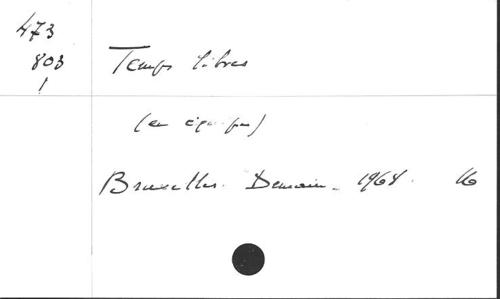 473
803
!
Temps libres
(en équipes)
Bruxelles. Demain. 1968. 16